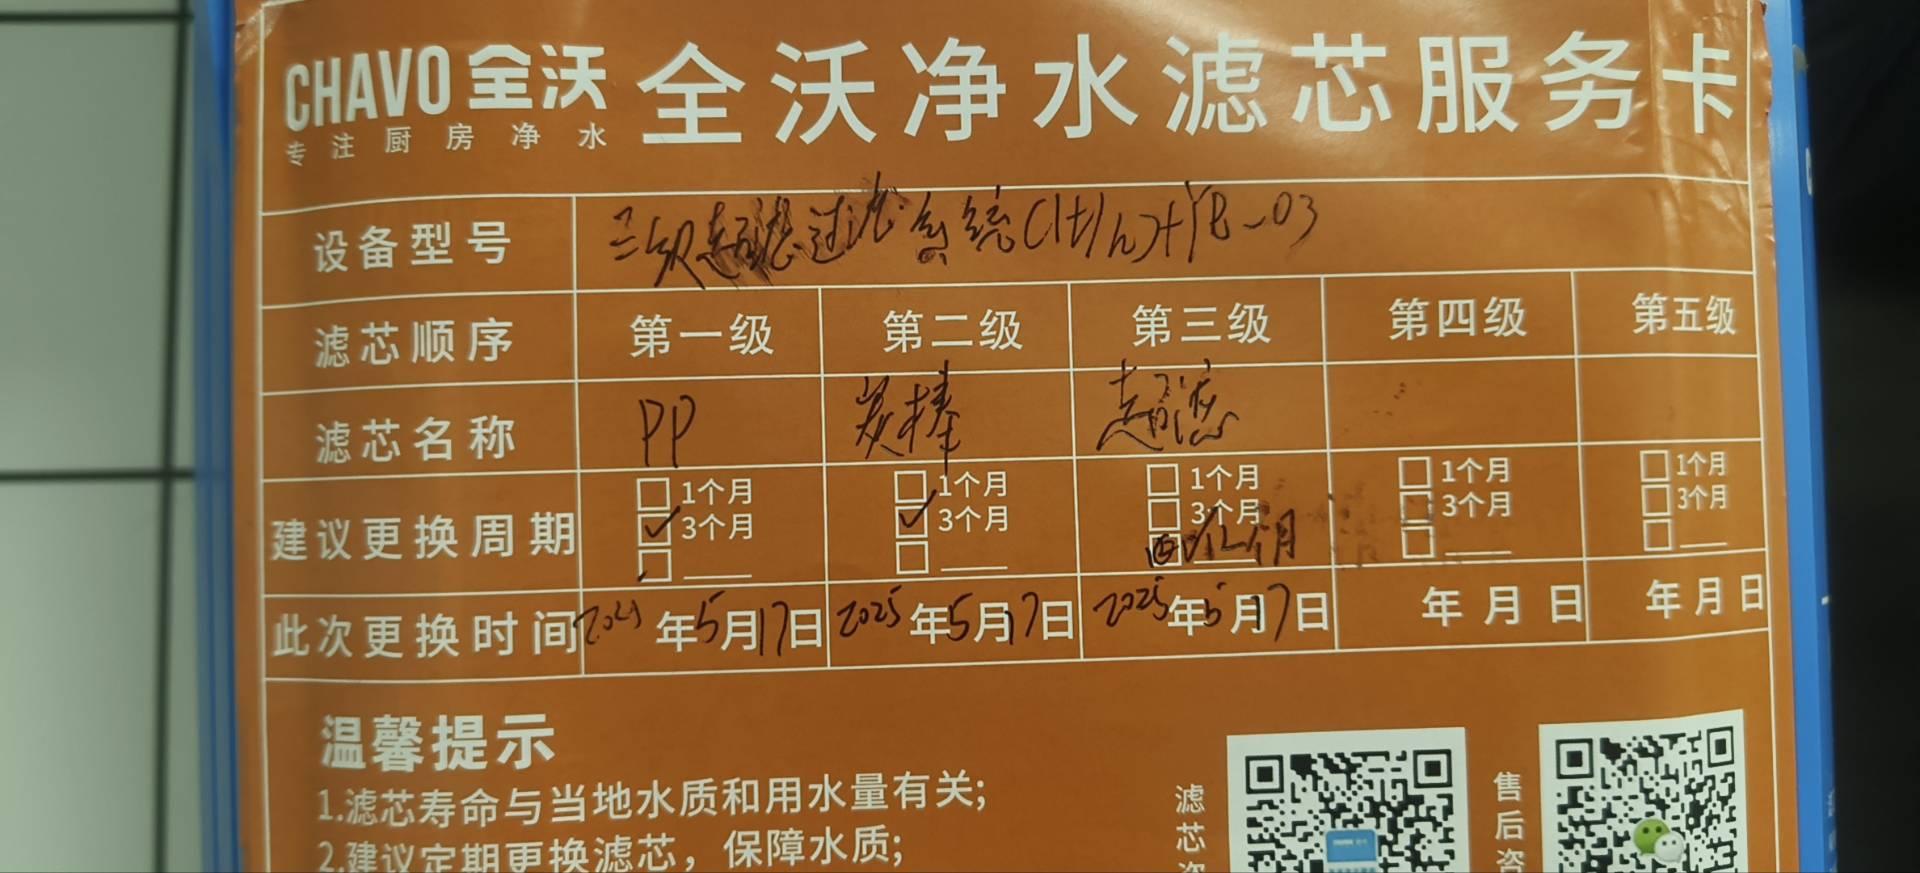 CHAVO 全沃
专注厨房净水
全沃净水滤芯服务卡
设备型号 三级超滤过滤系统(1t/h)+YB-03
滤芯顺序 第一级 第二级 第三级 第四级 第五级
滤芯名称 PP 炭棒 超滤
建议更换周期
1个月 1个月 1个月 1个月 1个月
3个月 3个月 3个月 3个月 3个月
此次更换时间 年5月17日 2025年5月17日 2025年5月17日 年月日 年月日
温馨提示
1.滤芯寿命与当地水质和用水量有关;
2.建议定期更换滤芯，保障水质;
滤芯咨
售后咨